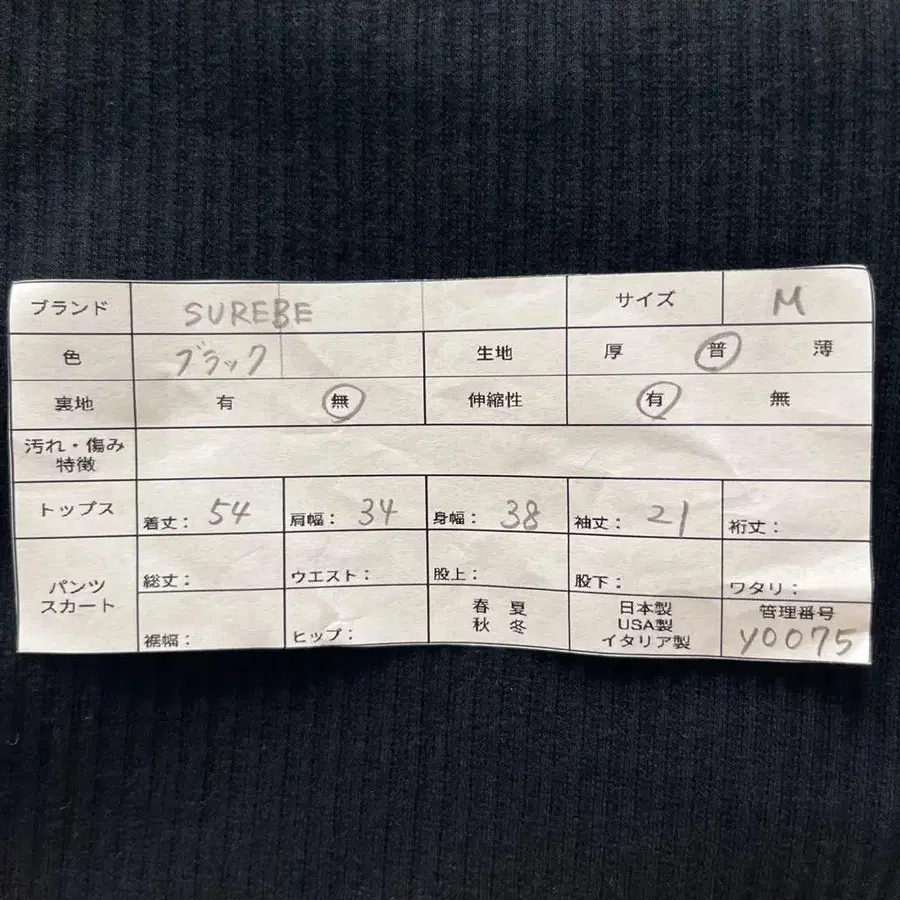 ブランド SUREBE サイズ M
色 ブラック 生地 厚 普 薄
裏地 有 無 伸縮性 有 無
汚れ・傷み
特徴
トップス 着丈： 54 肩幅： 34 身幅： 38 袖丈： 21 裄丈：
パンツ
スカート
総丈： ウエスト： 股上： 股下： ワタリ：
裾幅： ヒップ：
春 夏
秋 冬
日本製
USA製
イタリア製
管理番号
Y0075